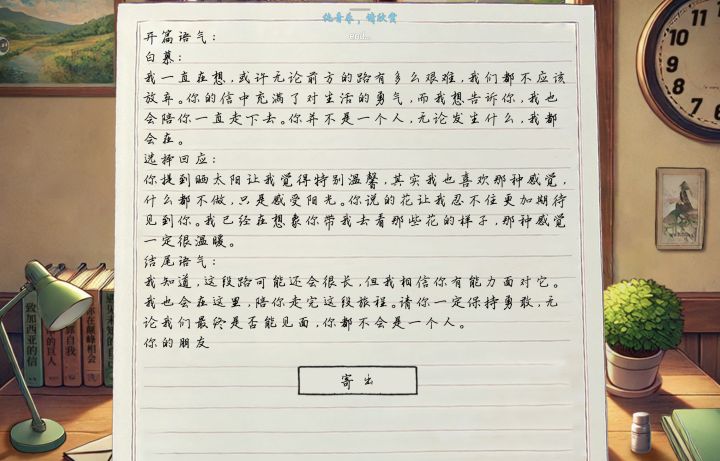 纯音乐，请欣赏
end...
开篇语气：
白慕：
我一直在想，或许无论前方的路有多么艰难，我们都不应该
放弃。你的信中充满了对生活的勇气，而我想告诉你，我也
会陪你一直走下去。你并不是一个人，无论发生什么，我都
会在。
选择回应：
你提到晒太阳让我觉得特别温馨，其实我也喜欢那种感觉，
什么都不做，只是感受阳光。你说的花让我忍不住更加期待
见到你。我已经在想象你带我去看那些花的样子，那种感觉
一定很温暖。
结尾语气：
我知道，这段路可能还会很长，但我相信你有能力面对它。
我也会在这里，陪你走完这段旅程。请你一定保持勇敢，无
论我们最终是否能见面，你都不会是一个人。
你的朋友
寄出
致加西亚的信
的巨人
靠自我
你在巅峰相会
10
11
12
1
2
3
4
5
9
8
7
6